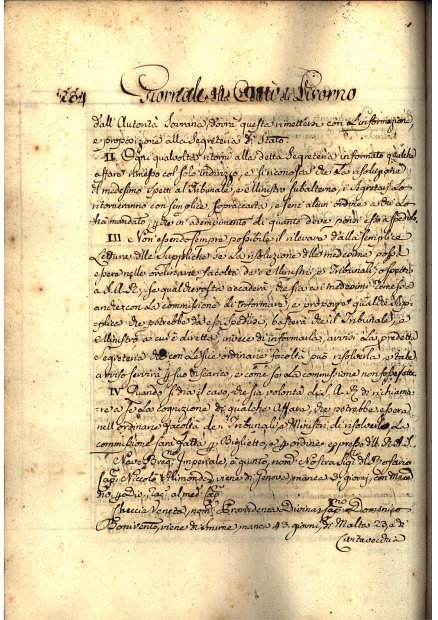 284 Giornale della Città di Livorno
dall' Autorità Sovrana, dovrà questa rimettersi con l'informazione
e proposizione alla Segreteria di Stato.
II. Ogni qualvolta ritorni alla detta Segreteria informato qualche
affare rimesso col solo indirizzo, e si riconosca che la risoluzione
medesimo spetti al Tribunale, e Ministro subalterno, i Segretarj lo
ritorneranno con semplice sopraccarta, e senz' alcun ordine a chi lo
ha mandato, in adempimento di quanto deve
III. Non essendo sempre possibile il rilevare dalla semplice
Lettura delle Suppliche se la risoluzione delle medesime possa
essere nelle ordinarie facoltà de' Ministri, e Tribunali, o spetti
a S.A.R., se qualche volta accaderà che sia a' medesimi rimessa
anche con la commissione di informare, e proporre qualche Sup-
plica che potrebbe da essi spedirsi, basterà che il Tribunale, e
Ministro a cui è diretta, invece di informarla, avvisi la predetta
Segreteria che con le sue ordinarie facoltà può risolverla, e tale
avviso servirà per suo discarico, e come se la commissione non fosse fatta.
IV. Quando si dia il caso, che sia volontà di S.A.R. di richiama-
re a se la cognizione di qualche Affare, che potrebbe essere
nell' ordinarie facoltà de' Tribunali, e Ministri di risolverlo, La
commissione sarà fatta per Biglietto, e per ordine espresso dell' A.S.
Nave Imperiale, nom. Nostra Sig. del Rosario
Cap. Niccolò viene di Genova, manca 3 giorni, con
al med. Cap.
Checcia Veneta, nom. Provvidenza Divina, Cap. Domenico
viene di Smirne manca 43 giorni, di Malta 23, e di
Civitavecchia